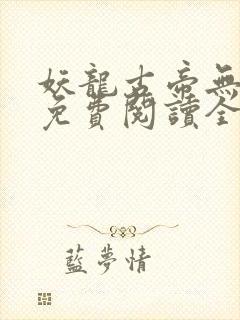 妖龍古帝無
免費閱讀全
藍夢情